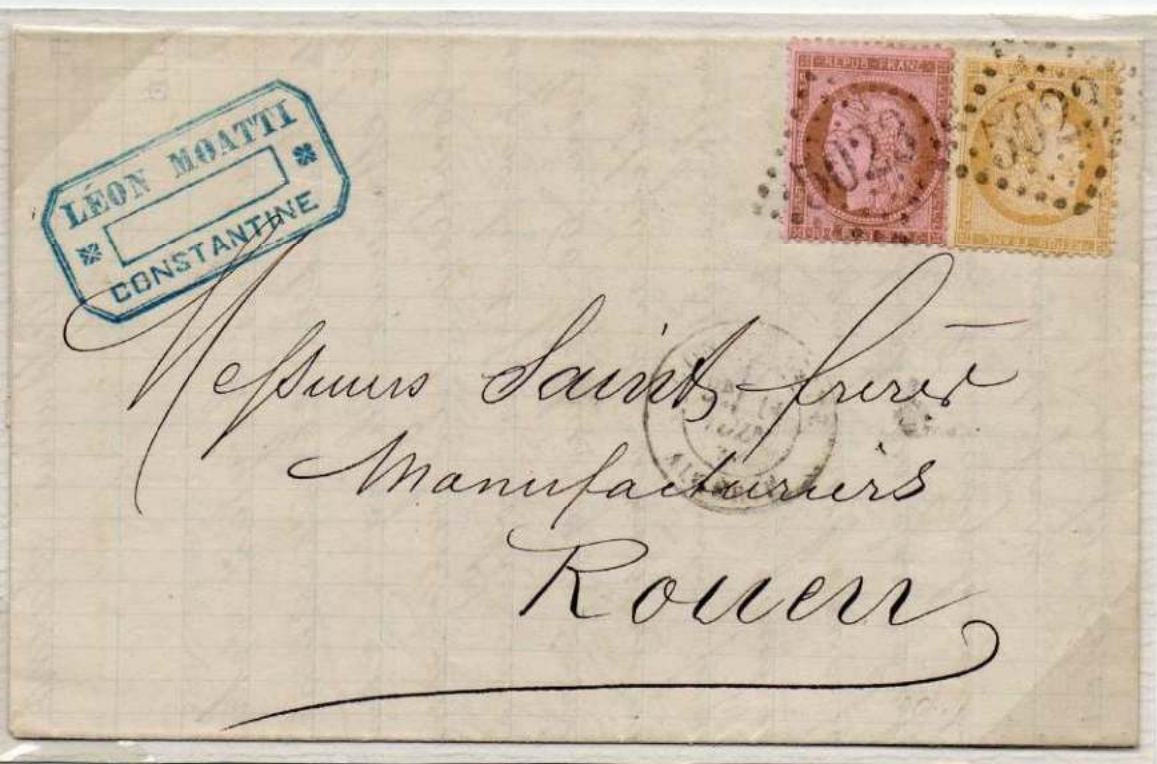 LÉON MOATTI
CONSTANTINE
REPUB FRANC
5023
502
Messieurs Saint frères
Manufacturiers
Rouen